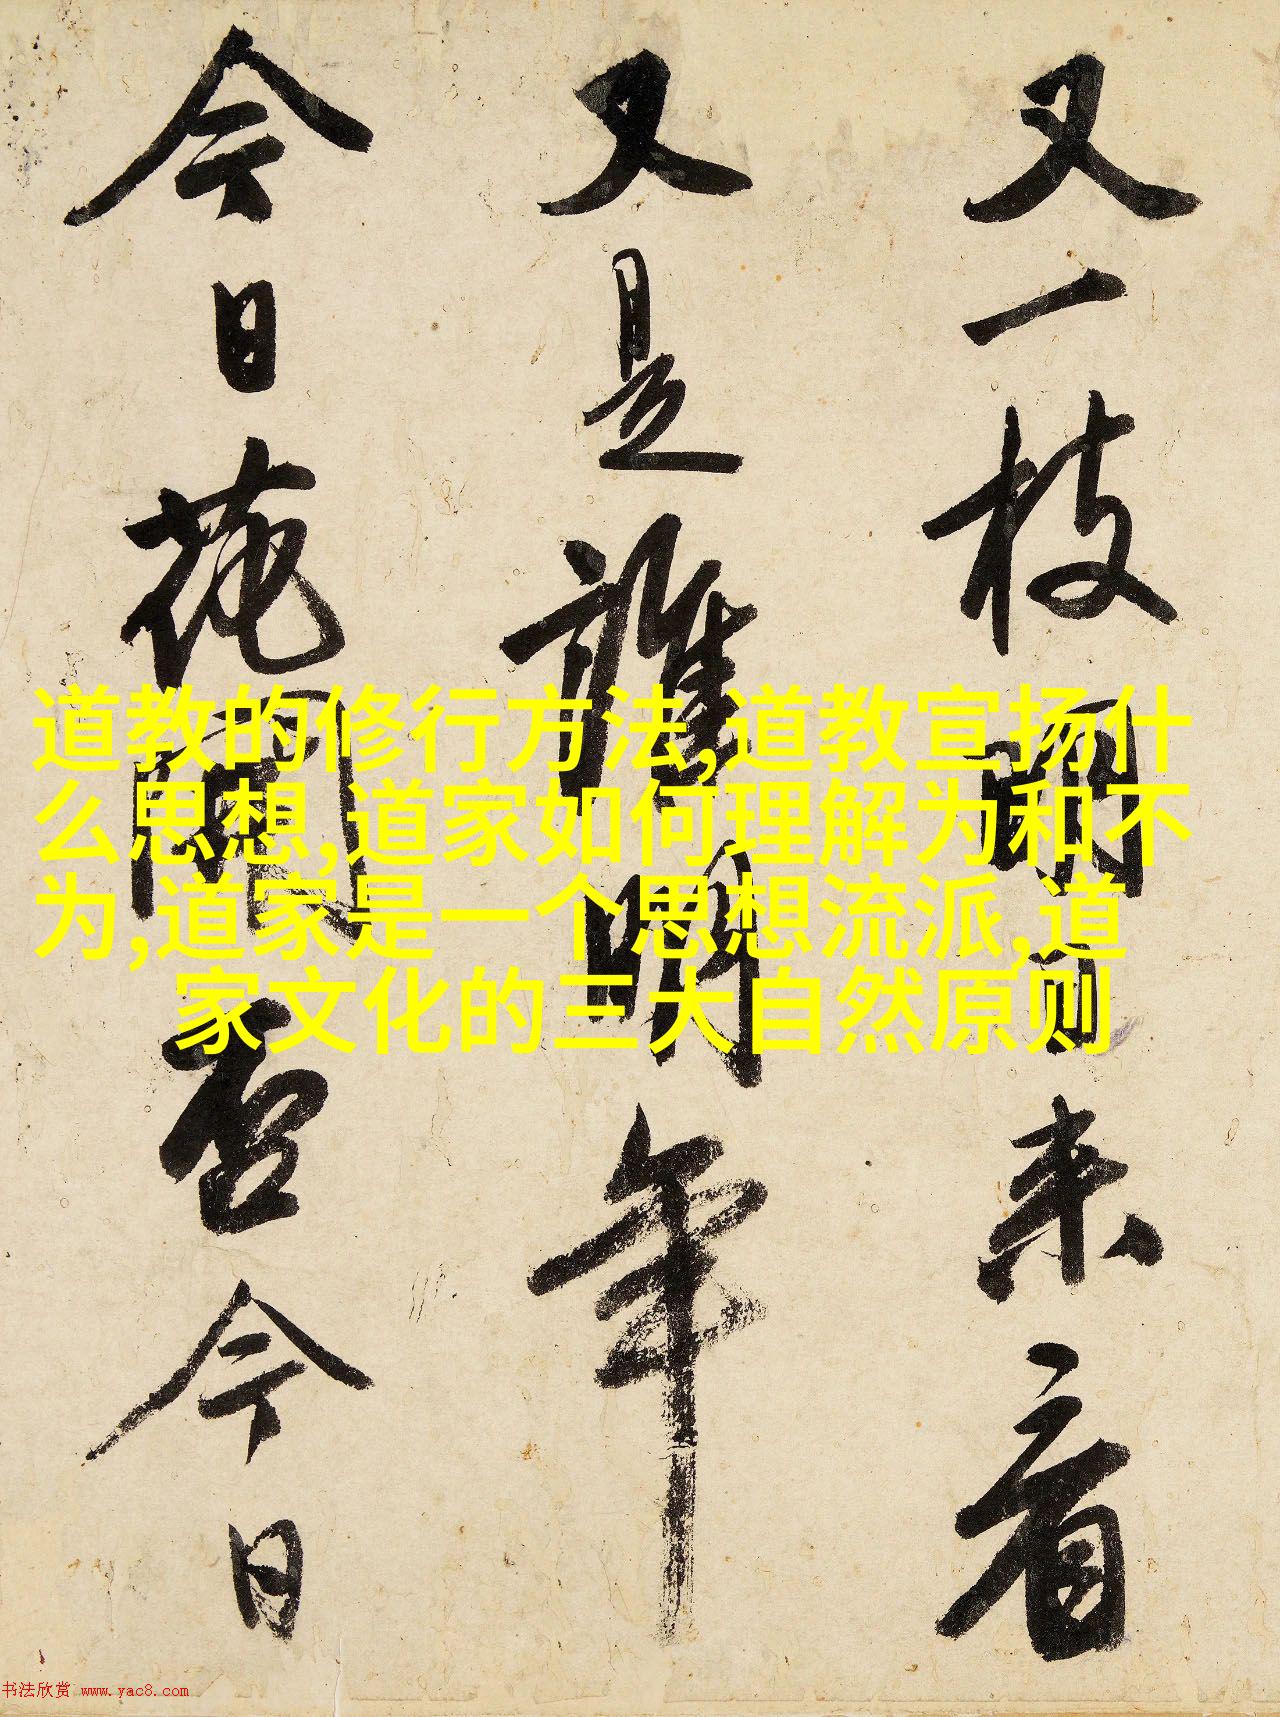 又一枝明日来看
又是誰明年
今日花開否今日
道教的修行方法,道教宣扬什
么思想,道家如何理解为和不
为,道家是一个思想流派,道
家文化的三大自然原则
书法欣赏 www.yac8.com